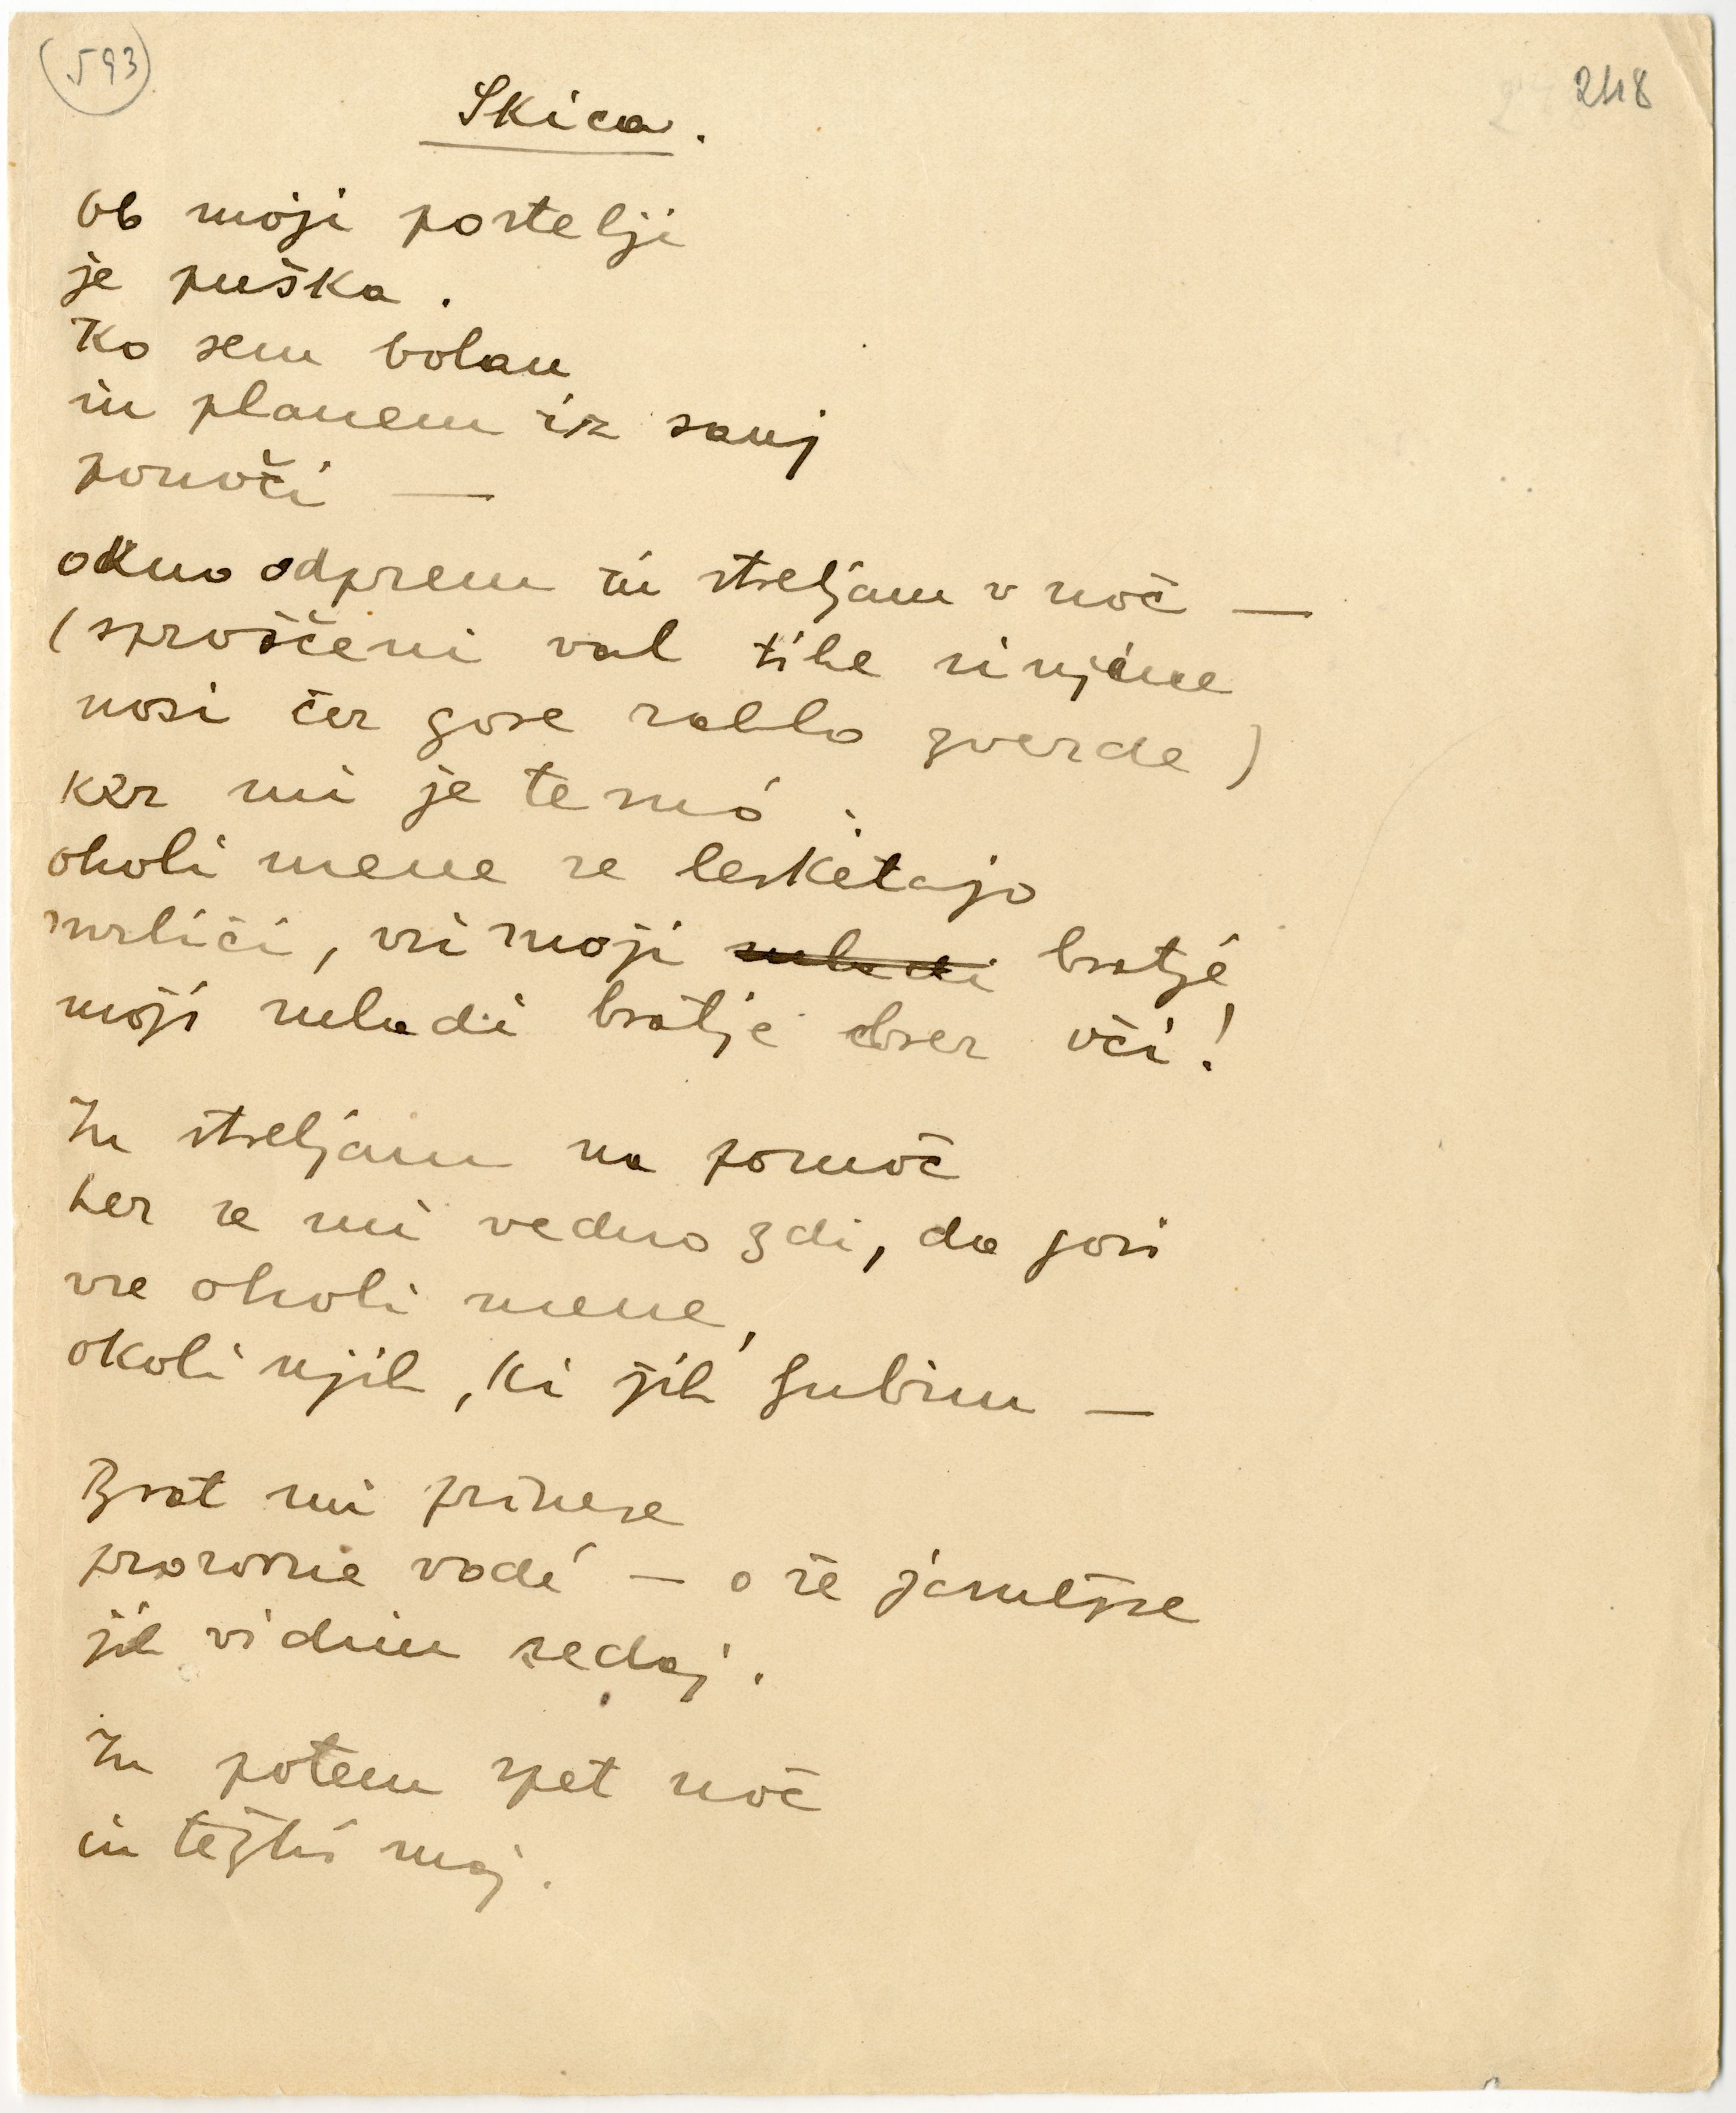 (593)
248
Skica.
Ob moji postelji
je puška.
Ko sem bolan
in planem iz sanj
ponoči —
okno odprem in streljam v noč —
(sproščeni val tihe sinjine
nosi čez gore rahlo zvezde)
ker mi je temó.
okoli mene se lesketajo
mrliči, vsi moji mladi bratjé
moji mladi bratje brez oči!
In streljam na pomoč
ker se mi vedno zdi, da gori
vse okoli mene,
okoli njih, ki jih ljubim —
Brat mi prinese
prozorne vodé — o že jasnejše
jih vidim sedaj.
In potem spet noč
in težki moj.